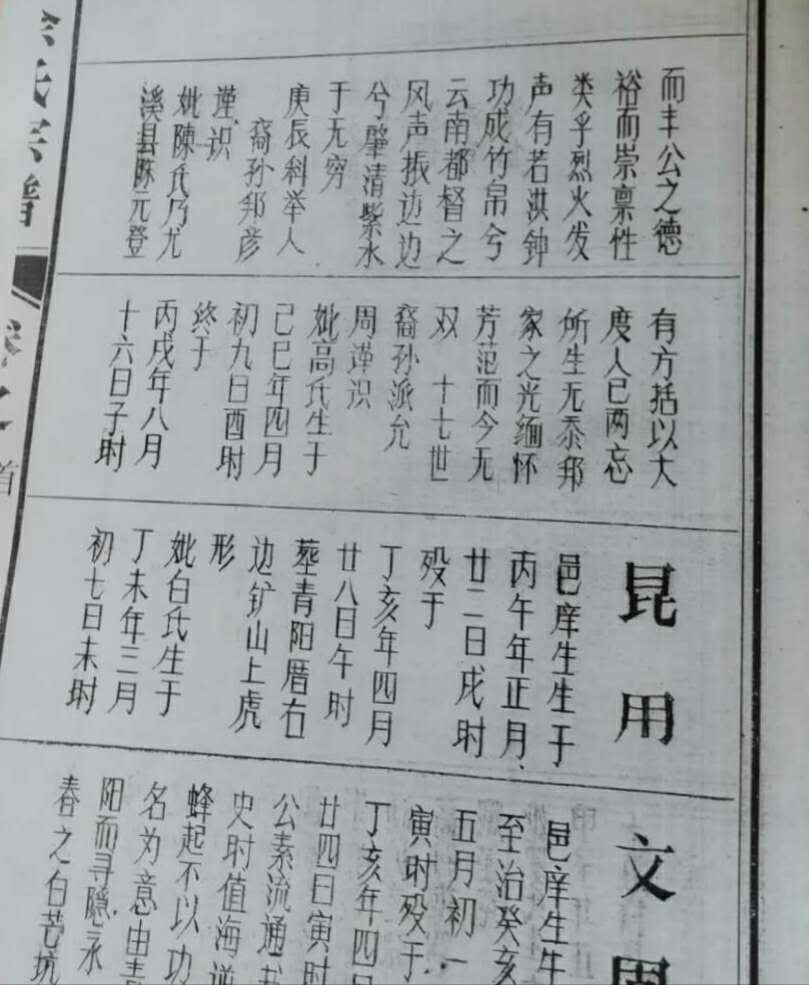 氏宗谱
卷之首
而丰公之德
裕而崇禀性
类乎烈火发
声有若洪钟
功成竹帛兮
云南都督之
风声振边边
兮肇清紫水
于无穷
庚辰科举人
裔孙邦彦
谨识
妣陳氏乃尤
溪县陈元登
有方括以大
度人已两忘
所生无忝邦
家之光缅怀
芳范而今无
双 十七世
裔孙派允
周谨识
妣高氏生于
己巳年四月
初九日酉时
终于
丙戌年八月
十六日子时
昆用
邑庠生生于
丙午年正月
廿二日戌时
殁于
丁亥年四月
廿八日午时
塟青阳厝右
边矿山上虎
形
妣白氏生于
丁未年三月
初七日未时
文周
邑庠生生
至治癸亥
五月初一
寅时殁于
丁亥年四月
廿四日寅时
公素流通
史时值海
蜂起不以功
名为意由
阳而寻隐永
春之白芒坑